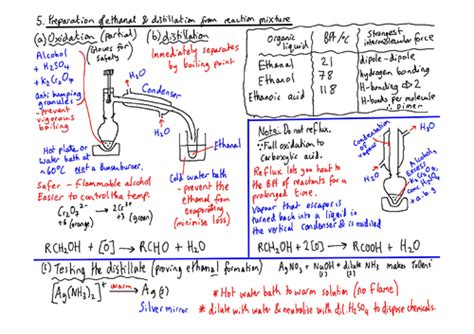 5. Preparation of ethanal & distillation from reaction mixture
(a) Oxidation (partial)
(Gloves for safety)
Alcohol
+ H2SO4
+ K2Cr2O7
Anti bumping
granules
- prevent
vigorous
boiling
Hot plate, or
water bath at
~60°C Not a Bunsen burner.
Safer - flammable alcohol
Easier to control the temp.
Cr2O7 2- → 2Cr 3+
+6 (orange) +3 (green)
(b) distillation
Immediately separates
by boiling point
H2O
Condenser
H2O
Ethanal
Cold water bath
- prevent the
ethanal from
evaporating
(minimise loss)
RCH2OH + [O] → RCHO + H2O
Organic liquid
BPt /°C
Strongest intermolecular force
Ethanal 21 dipole-dipole
Ethanol 78 hydrogen bonding
Ethanoic acid 118 H-bonding
H-bonds per molecule
dimer
Note: Do not reflux.
Full oxidation to
carboxylic acid.
Reflux lets you heat to
the BPt of reactants for a
prolonged time.
Vapour that escapes is
turned back into a liquid in
the vertical condenser & is oxidised
Condensation
of vapour
H2O
H2O
Alcohol,
Excess
+ a.b.g
RCH2OH + 2[O] → RCOOH + H2O
(c) Testing the distillate (proving ethanal formation)
AgNO3 + NaOH + dilute NH3 makes Tollens'
[Ag(NH3)2]+ warm → Ag (s)
Silver mirror
* Hot water bath to warm solution (no flame)
* dilute with water & neutralise with dil. H2SO4 to dispose chemicals